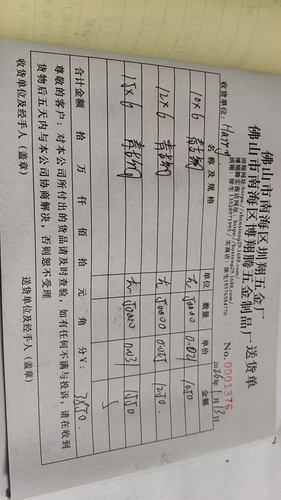 佛山市南海区圳翔五金厂
佛山市南海区博翔腾五金制品厂 送货单
No. 0001376
收货单位: Harry
2020年1月13日
名称及规格 单位 数量 单价 金额
10×6 50000 0.021 1050
12×6 50000 0.025 1250
15×6 50000 0.031 1550
合计金额 拾 万 仟 佰 拾 元 角 分¥: 3850.
尊敬的客户: 对本公司所付出的货品请及时查验, 如有任何不满与投诉, 请在收到
货物后五天内与本公司协商解决, 否则恕不受理
收货单位及经手人(盖章) 送货单位及经手人(盖章)